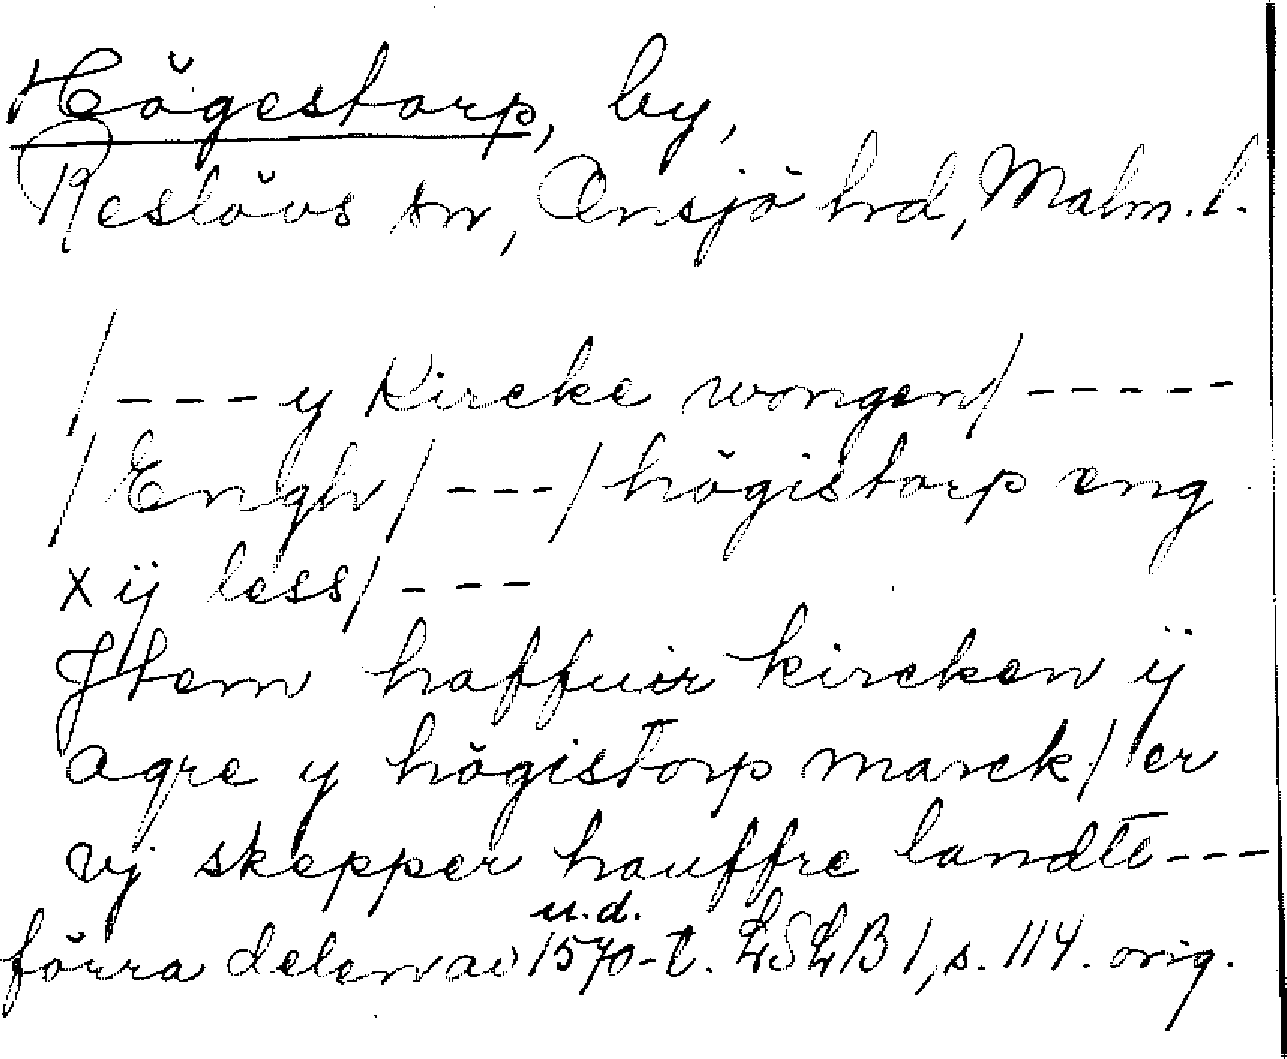 Högestorp, by,
Reslövs sn, Onsjö hrd, Malm. l.
/---y Kircke wongen/-----
/Engh/---/högistorp eng
xij less/---
Jtem haffuir kircken ij
agre y högistorp marck/ er
vj skepper hauffre landtt---
u.d.
förra delen av 1570-t. LSLB 1, s. 114. orig.